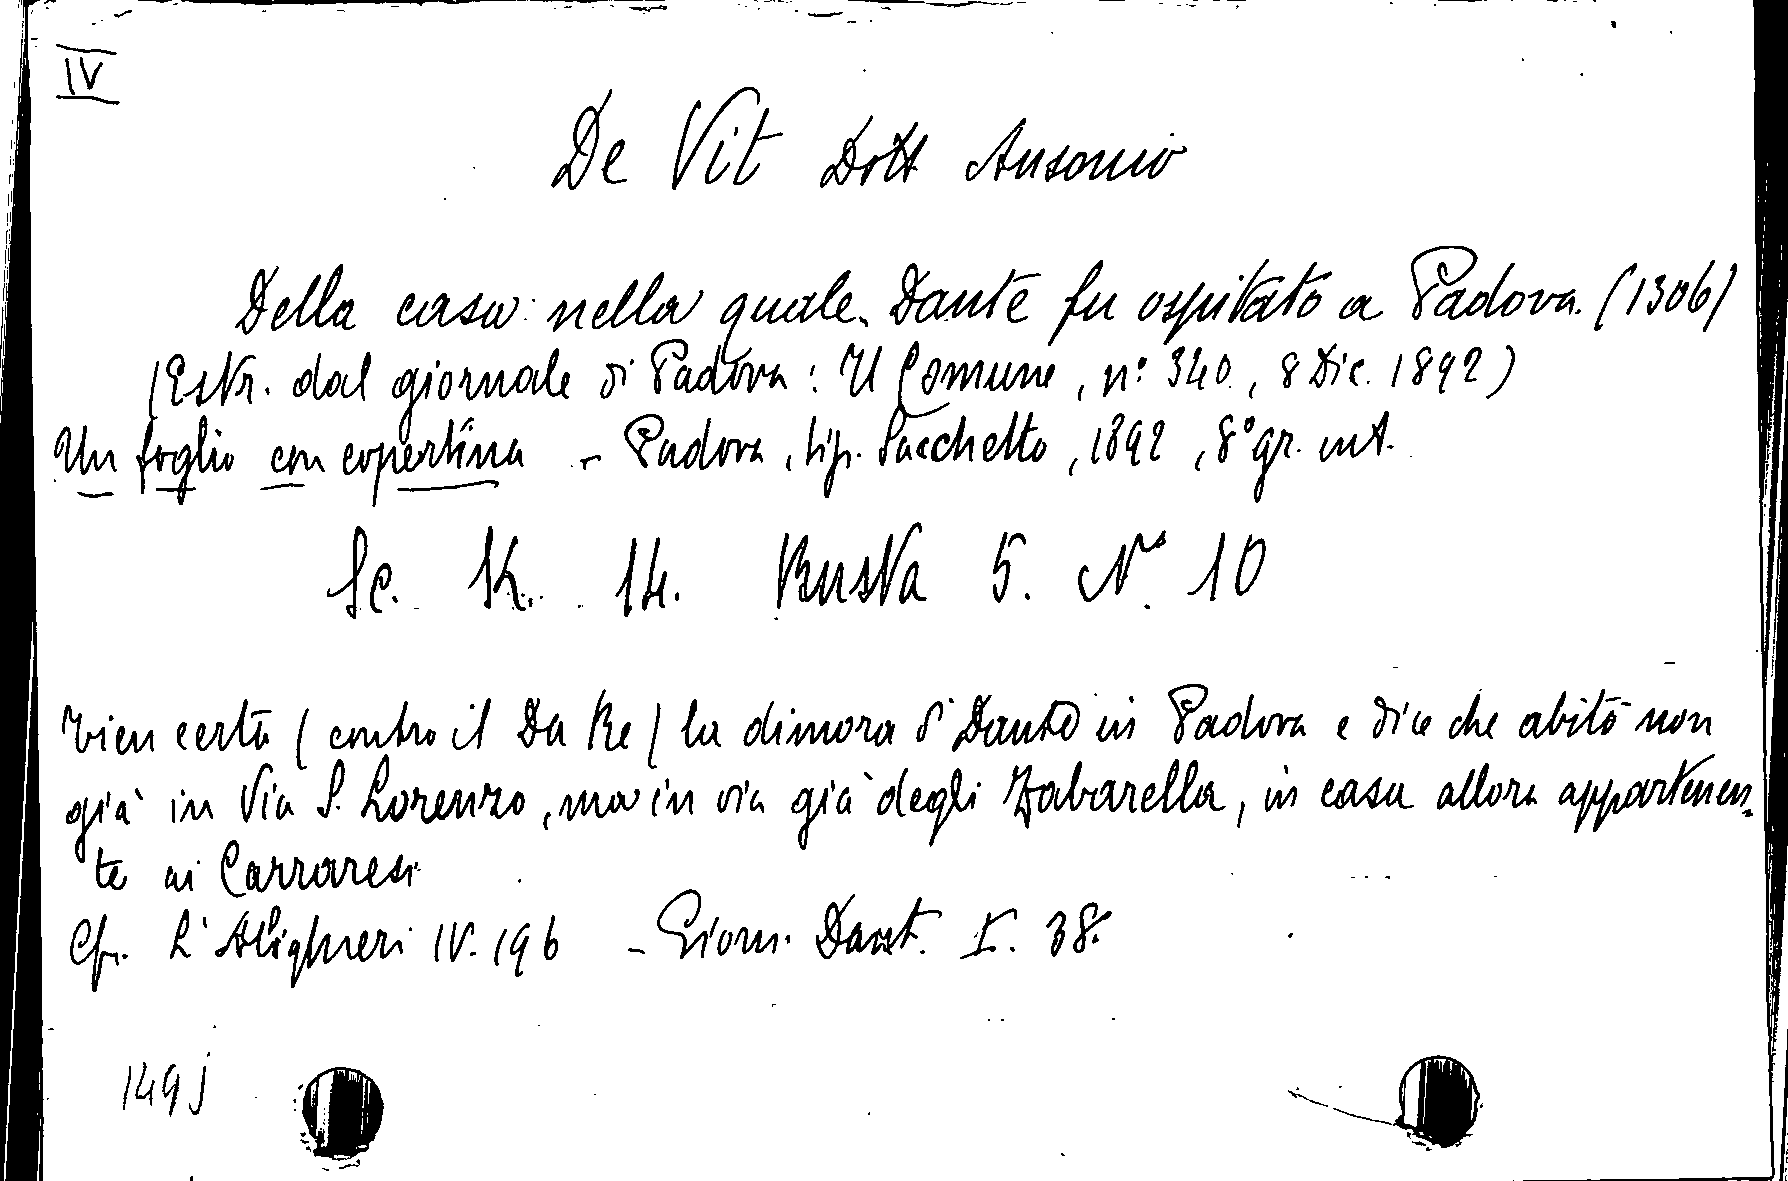 IV
De Vit Dott Ausonio
Della casa nella quale Dante fu ospitato a Padova. (1306)
(Estr. dal giornale di Padova: Il Comune, n.° 340, 8 Dic. 1892)
Un foglio con copertina - Padova, tip. Sacchetto, 1892, 8° gr. int.
Sc. K. 14. Busta 5. N° 10
Tien certa (contro il Da Re) la dimora di Dante in Padova e dice che abitò non
già in Via S. Lorenzo, ma in via già degli Zabarella, in casa allora appartenen-
te ai Carraresi
Cfr. L'Alighieri IV. 196 - Giorn. Dant. I. 38.
149 j